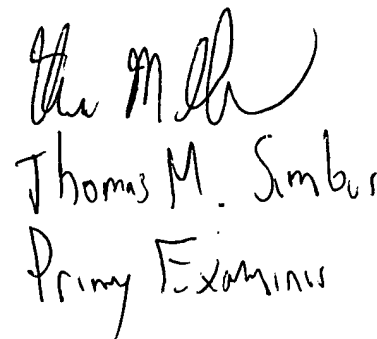 Thomas M. Simbus
Primy Examinis